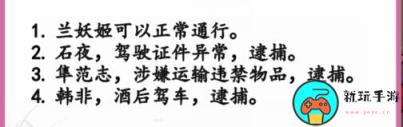 1. 兰妖姬可以正常通行。
2. 石夜，驾驶证件异常，逮捕。
3. 隼范志，涉嫌运输违禁物品，逮捕。
4. 韩非，酒后驾车，逮捕。
就玩手游